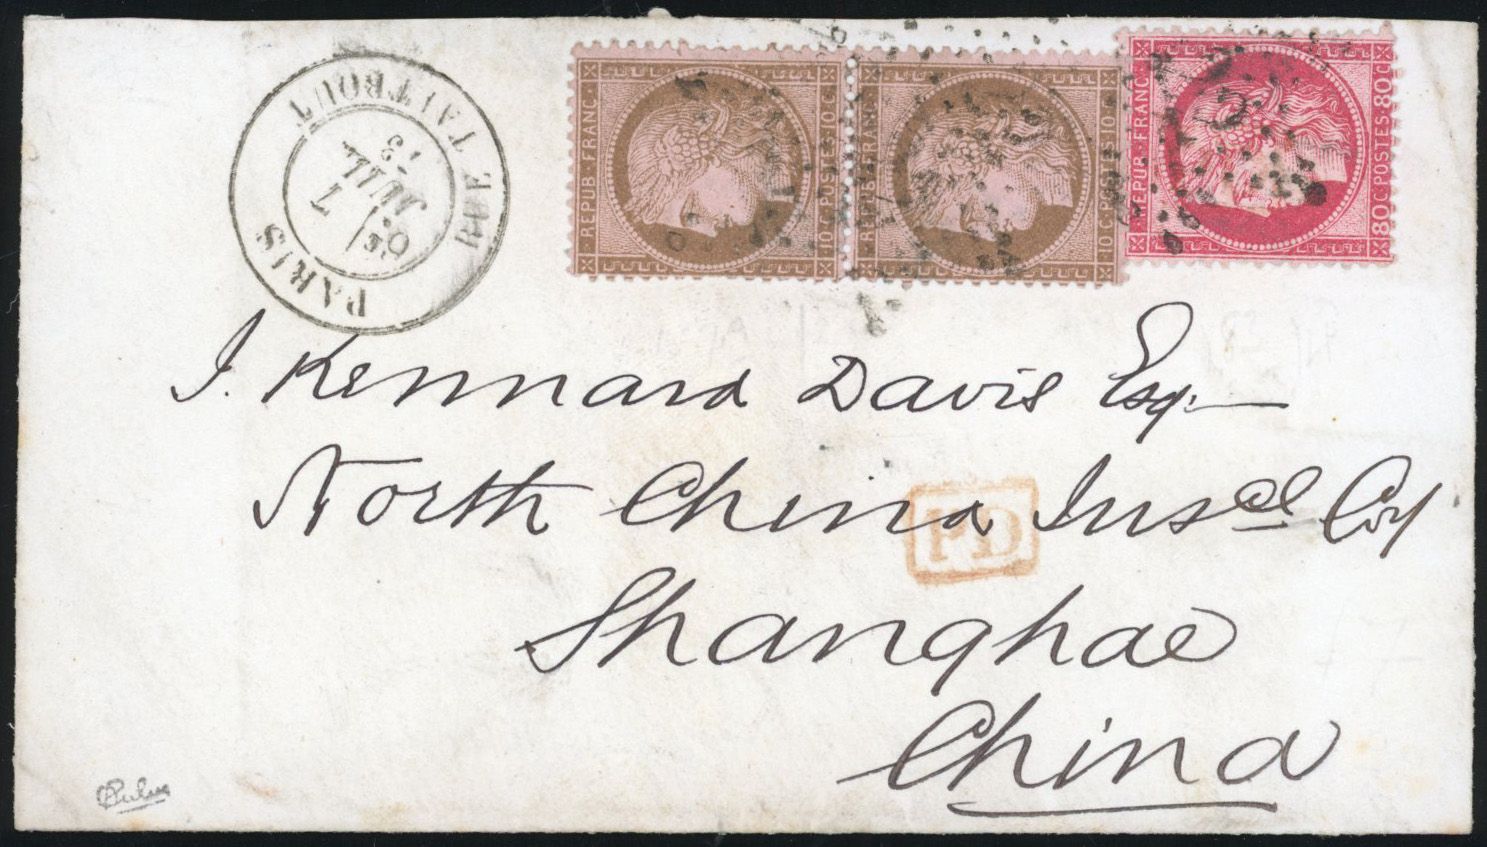 REPUB · FRANC ·
10 · C · POSTES · 10 · C
REPUB · FRANC ·
10 · C · POSTES · 10 · C
REPUB · FRANC ·
80 C · POSTES · 80 C
PARIS
RUE TAITBOUT
7
JUIL.
73
J. Kennard Davis Esq.
North China Insce Coy
PD
Shanghae
China